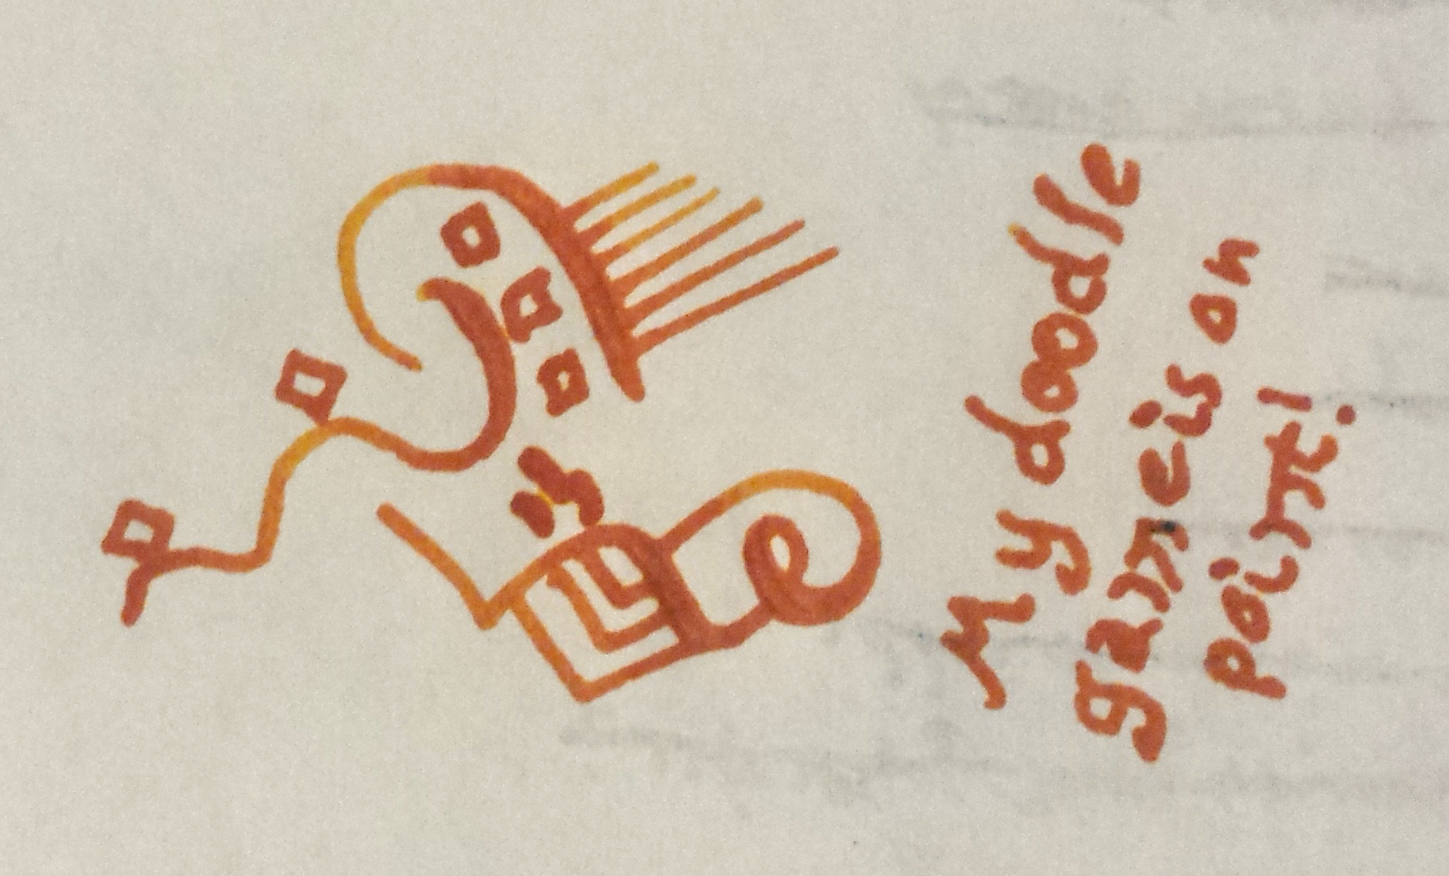 My doodle
game is on
point!